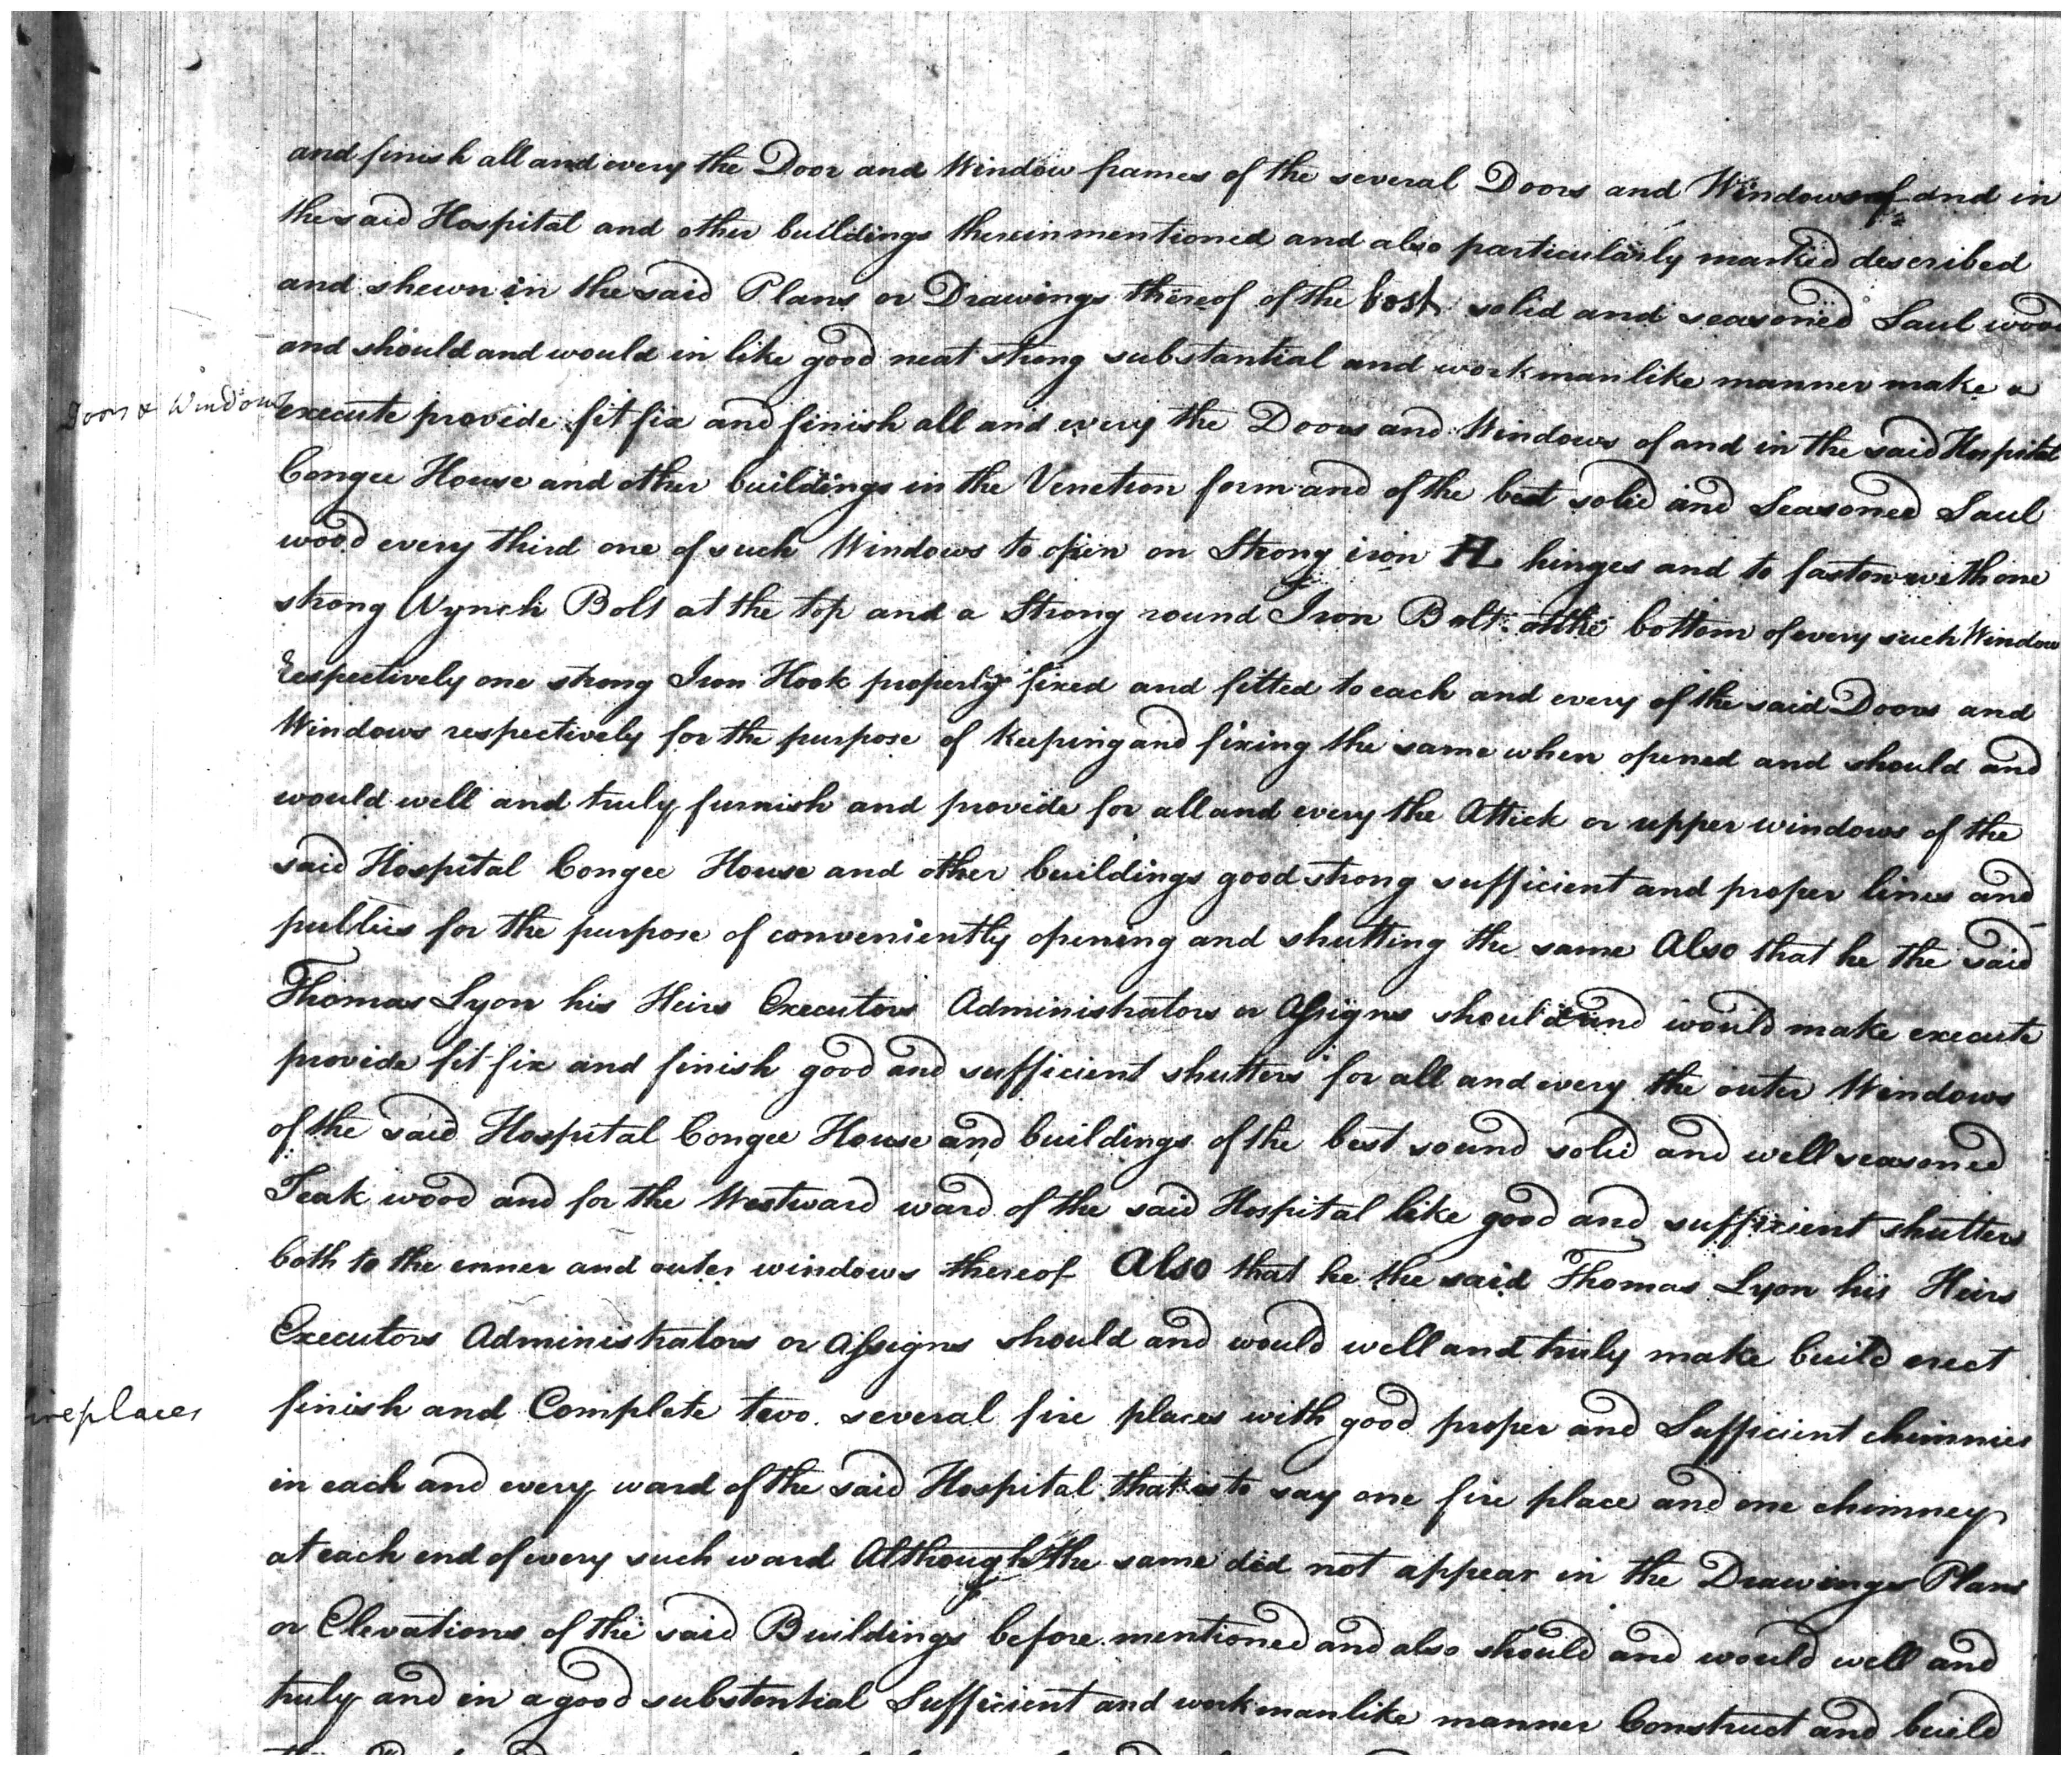 and finish all and every the Door and Window frames of the several Doors and Windows of and in
the said Hospital and other buildings therein mentioned and also particularly marked described
and shewn in the said Plans or Drawings thereof of the best solid and seasoned Saul wood
and should and would in like good neat strong substantial and workmanlike manner make &
Doors & Windows
execute provide fit fix and finish all and every the Doors and Windows of and in the said Hospital
Congee House and other buildings in the Venetion form and of the best solid and Seasoned Saul
wood every third one of such Windows to open on Strong iron H hinges and to fasten with one
strong Wynch Bolt at the top and a Strong round Iron Bolt at the bottom of every such Window
Respectively one strong Iron Hook properly fixed and fitted to each and every of the said Doors and
Windows respectively for the purpose of Keeping and fixing the same when opened and should and
would well and truly furnish and provide for all and every the Attick or upper windows of the
said Hospital Congee House and other buildings good strong sufficient and proper lines and
pullies for the purpose of conveniently opening and shutting the same Also that he the said
Thomas Lyon his Heirs Executors Administrators or Assigns should and would make execute
provide fit fix and finish good and sufficient shutters for all and every the outer Windows
of the said Hospital Congee House and buildings of the best sound solid and well seasoned
Teak wood and for the Westward ward of the said Hospital like good and sufficient shutters
both to the inner and outer windows thereof Also that he the said Thomas Lyon his Heirs
Executors Administrators or Assigns should and would well and truly make build erect
ireplaces
finish and Complete two several fire places with good proper and Sufficient chimnies
in each and every ward of the said Hospital that is to say one fire place and one chimney
at each end of every such ward Although the same did not appear in the Drawings Plans
or Elevations of the said Buildings before mentioned and also should and would well and
truly and in a good substantial Sufficient and workmanlike manner Construct and build